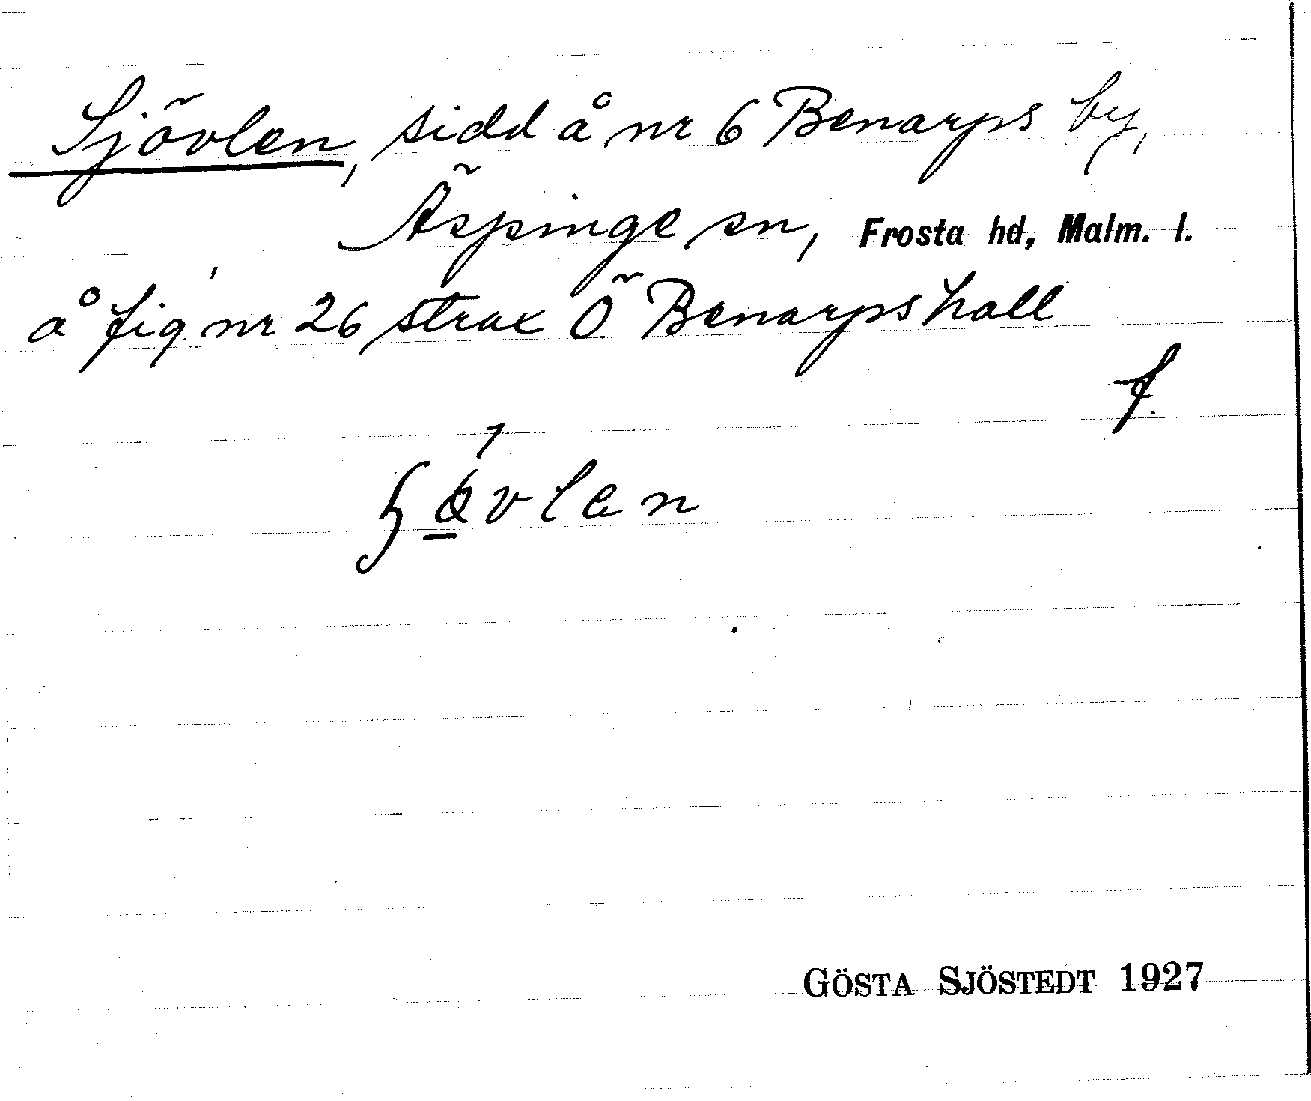 Sjövlen, sidd å nr 6 Benarps by,
Äspinge sn, Frosta hd, Malm. l.
å fig nr 26 strax Ö Benarpshall
f.
GÖSTA SJÖSTEDT 1927